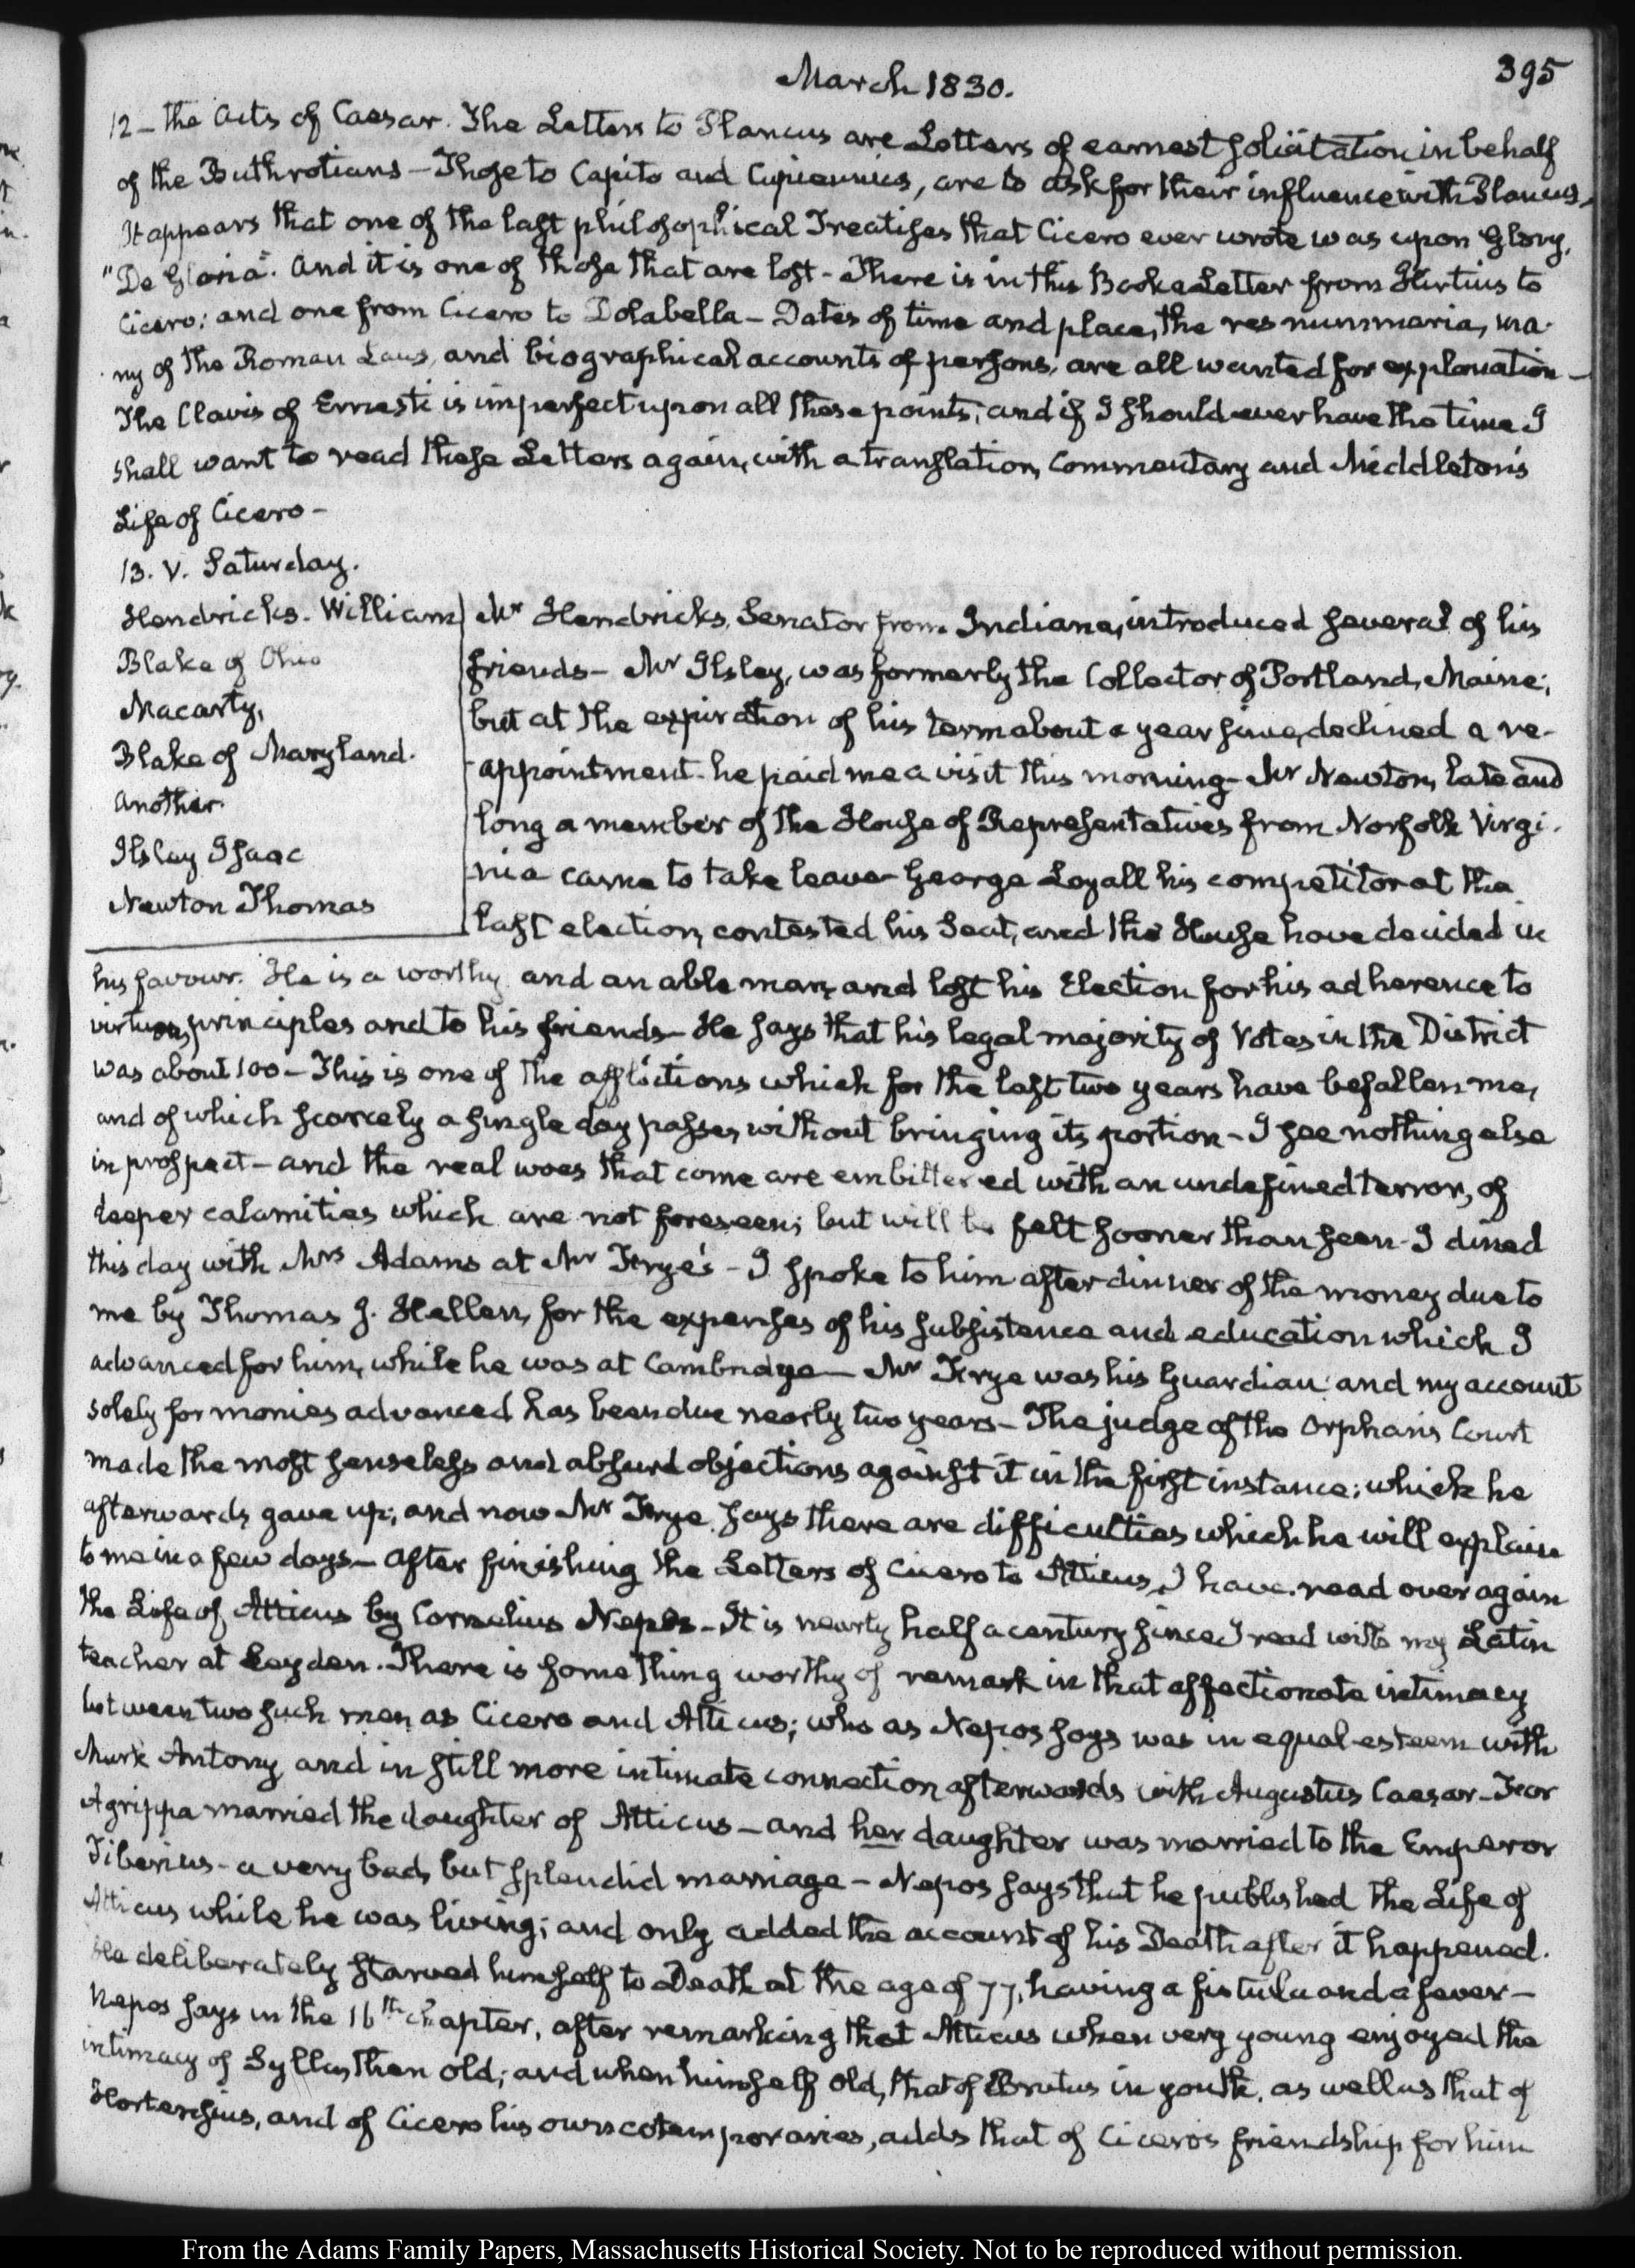 March 1830.
395
12 – the Acts of Caesar. The Letters to Plancus are Letters of earnest solicitation in behalf
of the Buthrotians – Those to Capito and Cupiennius, are to ask for their influence with Plancus.
It appears that one of the last philosophical Treatises that Cicero ever wrote was upon Glory,
"De Gloria". And it is one of those that are lost – There is in this Book a Letter from Hirtius to
Cicero; and one from Cicero to Dolabella – Dates of time and place, the res nummaria, ma-
ny of the Roman Laws, and biographical accounts of persons, are all wanted for explanation –
The Clavis of Ernesti is imperfect upon all these points; and if I should ever have the time I
shall want to read these Letters again, with a translation, commentary and Middleton's
Life of Cicero –
13. V. Saturday.
Hendricks. William
Blake of Ohio
Macarty,
Blake of Maryland.
Another.
Ilsley Isaac
Newton Thomas
Mr Hendricks, Senator from Indiana, introduced several of his
friends – Mr Ilsley, was formerly the Collector of Portland, Maine;
but at the expiration of his term about a year since, declined a re-
appointment – he paid me a visit this morning – Mr Newton, late and
long a member of the House of Representatives from Norfolk Virgi-
nia came to take leave – George Loyall his competitor at the
last election, contested his Seat, and the House have decided in
his favour. He is a worthy and an able man, and lost his Election for his adherence to
virtuous principles and to his friends – He says that his legal majority of Votes in the District
was about 100 – This is one of the afflictions which for the last two years have befallen me,
and of which scarcely a single day passes, without bringing its portion – I see nothing else
in prospect – and the real woes that come are embittered with an undefined terror, of
deeper calamities which are not foreseen; but will be felt sooner than seen – I dined
this day with Mrs Adams at Mr Frye's – I spoke to him after dinner of the money due to
me by Thomas J. Hellen, for the expenses of his subsistence and education which I
advanced for him, while he was at Cambridge – Mr Frye was his Guardian and my account
solely for monies advanced has been due nearly two years – The judge of the Orphan's Court
made the most senseless and absurd objections against it in the first instance; which he
afterwards gave up; and now Mr Frye says there are difficulties which he will explain
to me in a few days – After finishing the Letters of Cicero to Atticus, I have read over again
the Life of Atticus by Cornelius Nepos – It is nearly half a century since I read with my Latin
teacher at Leyden. There is something worthy of remark in that affectionate intimacy
between two such men as Cicero and Atticus; who as Nepos says was in equal esteem with
Mark Antony and in still more intimate connection afterwards with Augustus Caesar – For
Agrippa married the daughter of Atticus – and her daughter was married to the Emperor
Tiberius – a very bad, but splendid marriage – Nepos says that he published the Life of
Atticus while he was living; and only added the account of his Death after it happened.
He deliberately starved himself to Death at the age of 77, having a fistula and a fever –
Nepos says in the 16th chapter, after remarking that Atticus when very young enjoyed the
intimacy of Sylla, then old; and when himself old, that of Brutus in youth, as well as that of
Hortensius, and of Cicero his own cotemporaries, adds that of Cicero's friendship for him
From the Adams Family Papers, Massachusetts Historical Society. Not to be reproduced without permission.